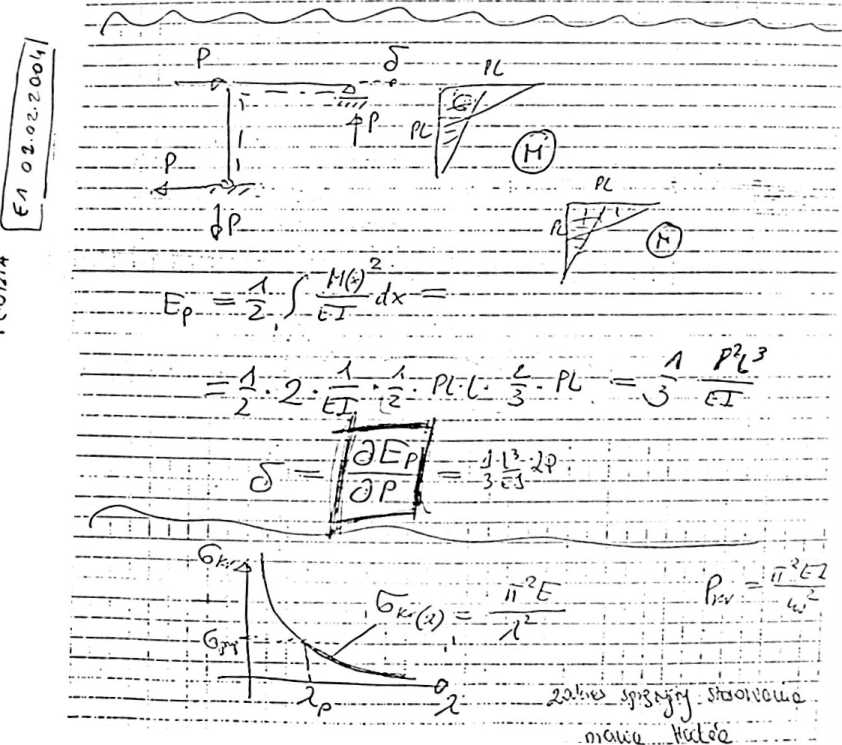 E1 02.02.2004
P δ PL
P PL M
P
P
PL
PL M
E_P = 1/2 ∫ M(x)²/EI dx =
= 1/2 · 2 · 1/EI · 1/2 · PL · L · 2/3 · PL = 1/3 P²L³/EI
δ = ∂E_P/∂P = 1/3 · L³/EI · 2P
σ_kr
σ_kr(λ) = π²E/λ²
P_kr = π²EI/lw²
λ_p λ
zakres sprężysty stosowania